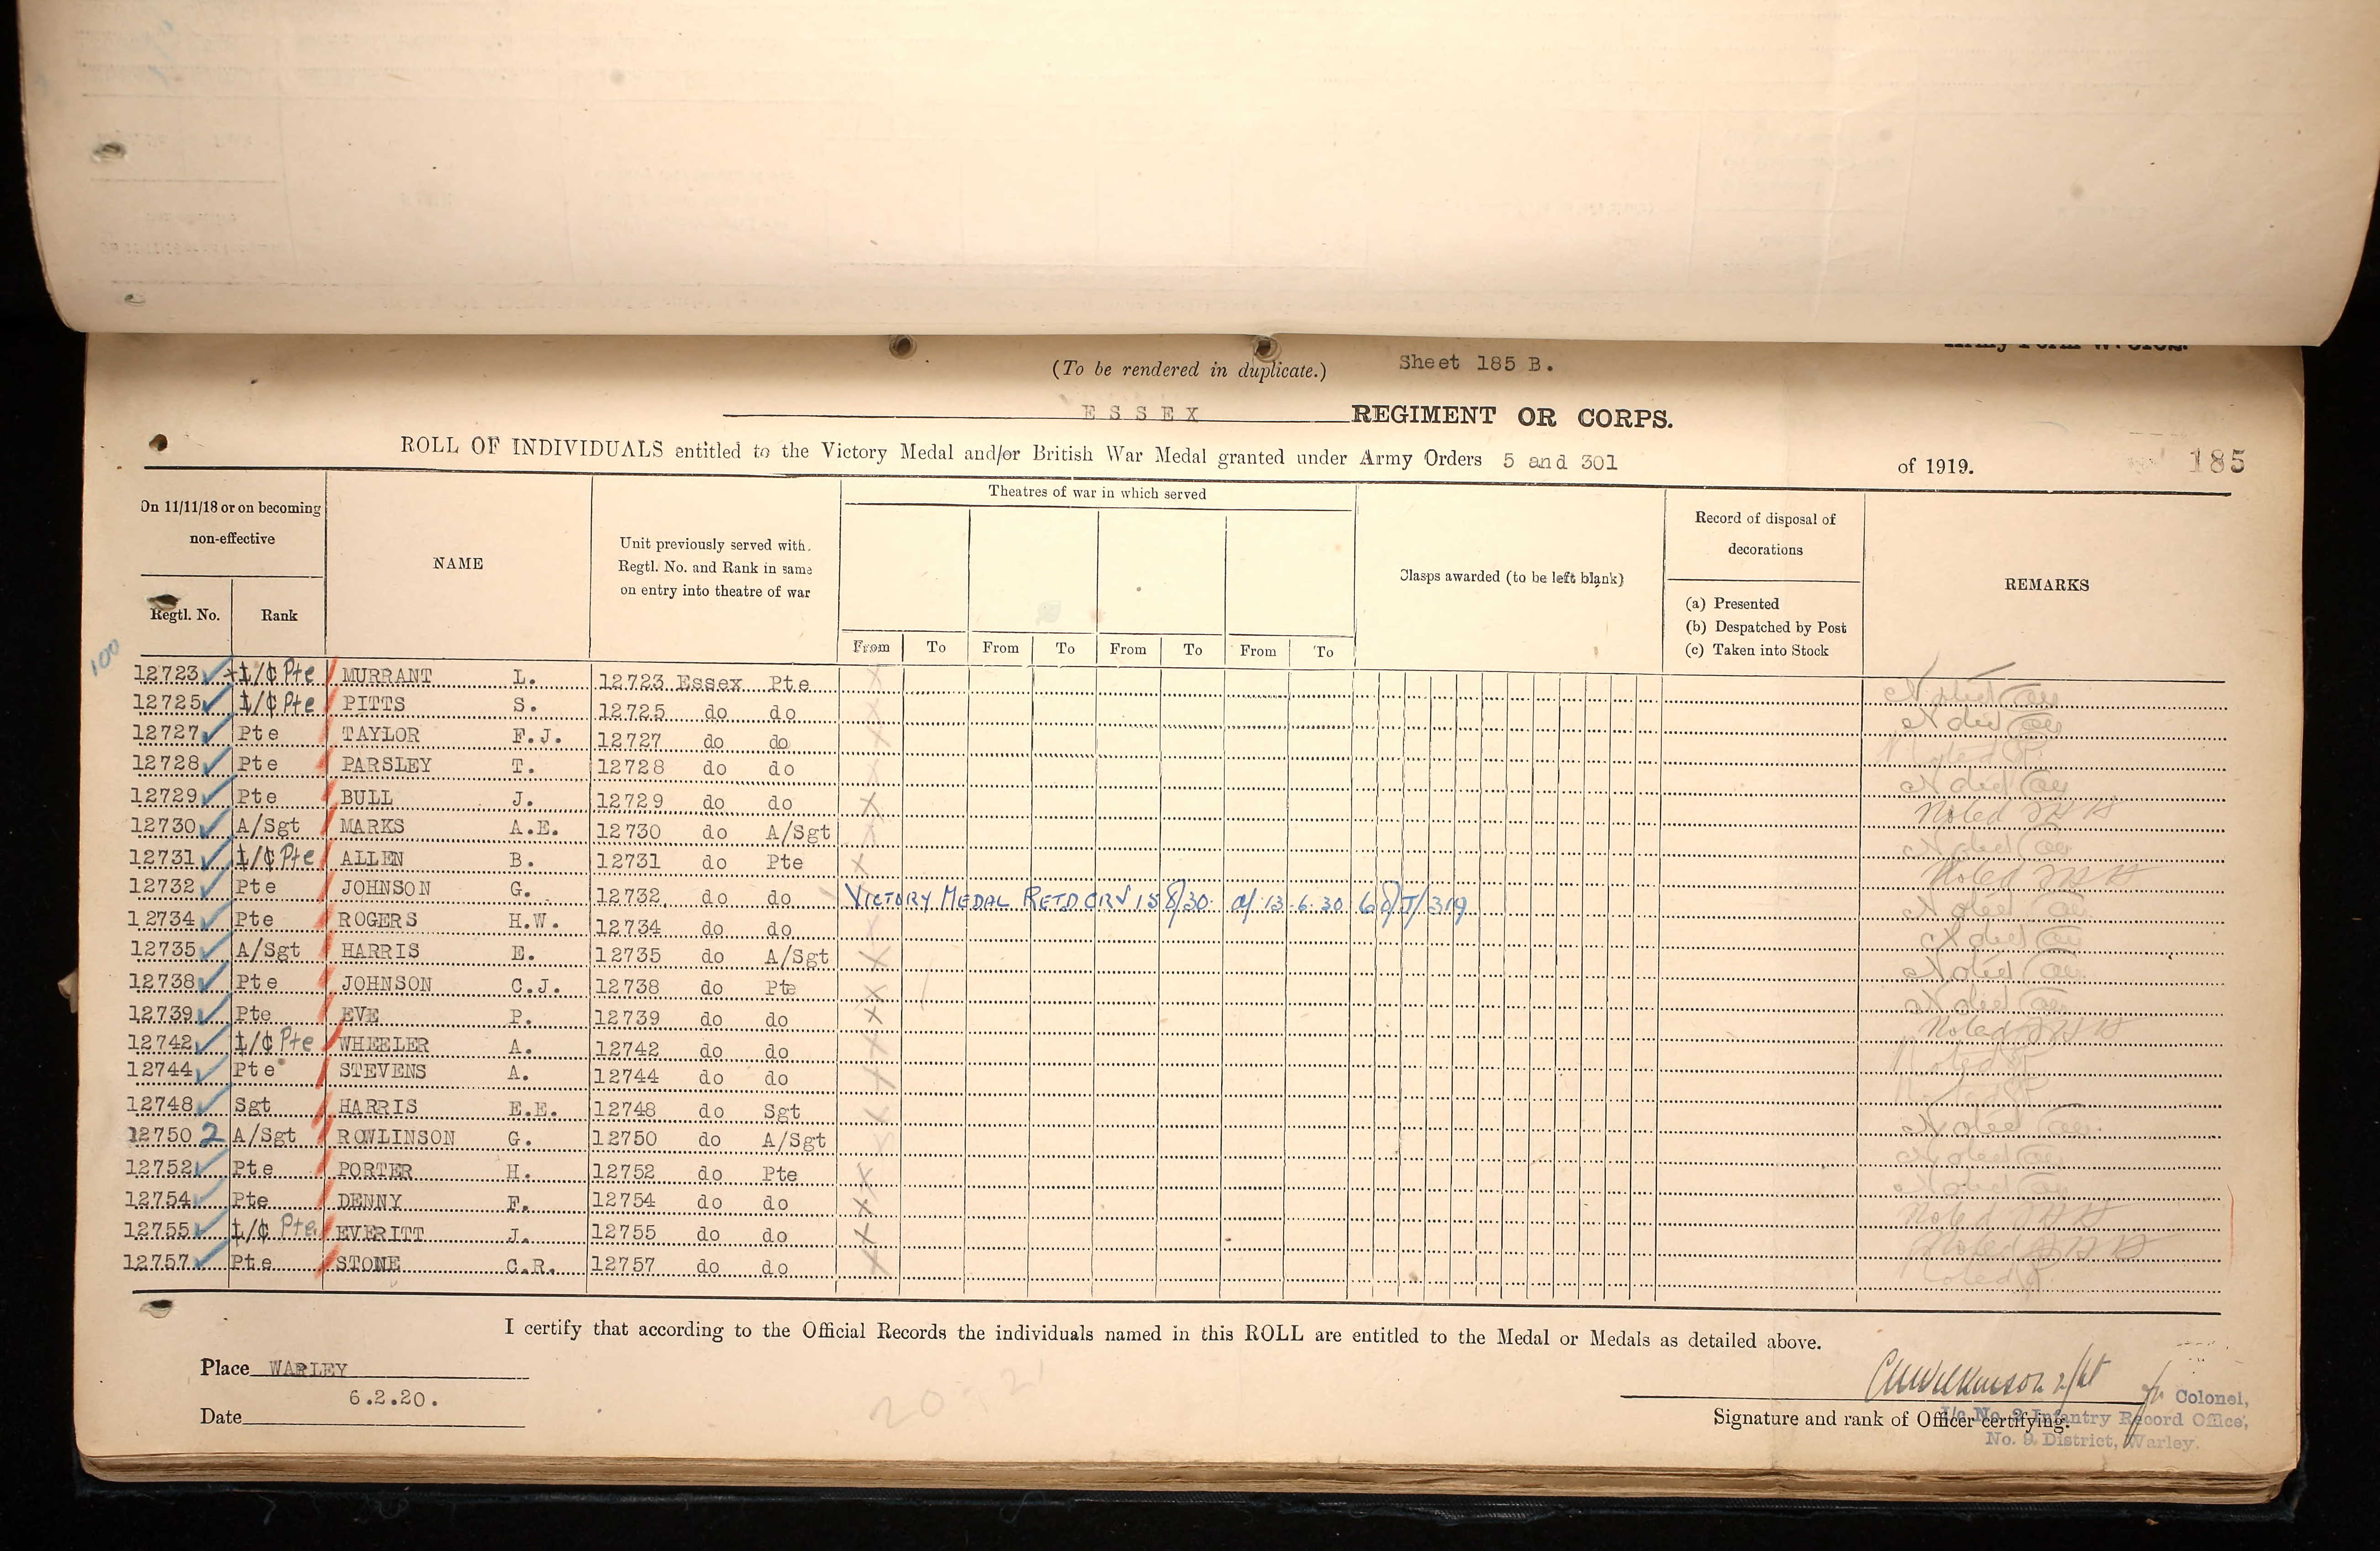 (To be rendered in duplicate.) Sheet 185 B.
ESSEX REGIMENT OR CORPS.
ROLL OF INDIVIDUALS entitled to the Victory Medal and/or British War Medal granted under Army Orders 5 and 301 of 1919. 185
On 11/11/18 or on becoming non-effective
Regtl. No. Rank
NAME
Unit previously served with. Regtl. No. and Rank in same on entry into theatre of war
Theatres of war in which served
From To From To From To From To
Clasps awarded (to be left blank)
Record of disposal of decorations
(a) Presented
(b) Despatched by Post
(c) Taken into Stock
REMARKS
100
12723 L/C Pte MURRANT L. 12723 Essex Pte Noted
12725 L/C Pte PITTS S. 12725 do do Noted
12727 Pte TAYLOR F.J. 12727 do do Noted
12728 Pte PARSLEY T. 12728 do do Noted
12729 Pte BULL J. 12729 do do Noted
12730 A/Sgt MARKS A.E. 12730 do A/Sgt Noted
12731 L/C Pte ALLEN B. 12731 do Pte Noted
12732 Pte JOHNSON G. 12732 do do VICTORY MEDAL RETD CRV 15/8/30. 13.6.30 68/J/319 Noted
12734 Pte ROGERS H.W. 12734 do do Noted
12735 A/Sgt HARRIS E. 12735 do A/Sgt Noted
12738 Pte JOHNSON C.J. 12738 do Pte Noted
12739 Pte EVE P. 12739 do do Noted
12742 L/C Pte WHEELER A. 12742 do do Noted
12744 Pte STEVENS A. 12744 do do Noted
12748 Sgt HARRIS E.E. 12748 do Sgt Noted
12750 2 A/Sgt ROWLINSON G. 12750 do A/Sgt Noted
12752 Pte PORTER H. 12752 do Pte Noted
12754 Pte DENNY F. 12754 do do Noted
12755 L/C Pte EVERITT J. 12755 do do Noted
12757 Pte STONE C.R. 12757 do do Noted
I certify that according to the Official Records the individuals named in this ROLL are entitled to the Medal or Medals as detailed above.
Place WARLEY
6.2.20.
Date
Wilkinson 2/Lt for Colonel,
Signature and rank of Officer certifying.
I/c No. 2 Infantry Record Office,
No. 9. District, Warley.